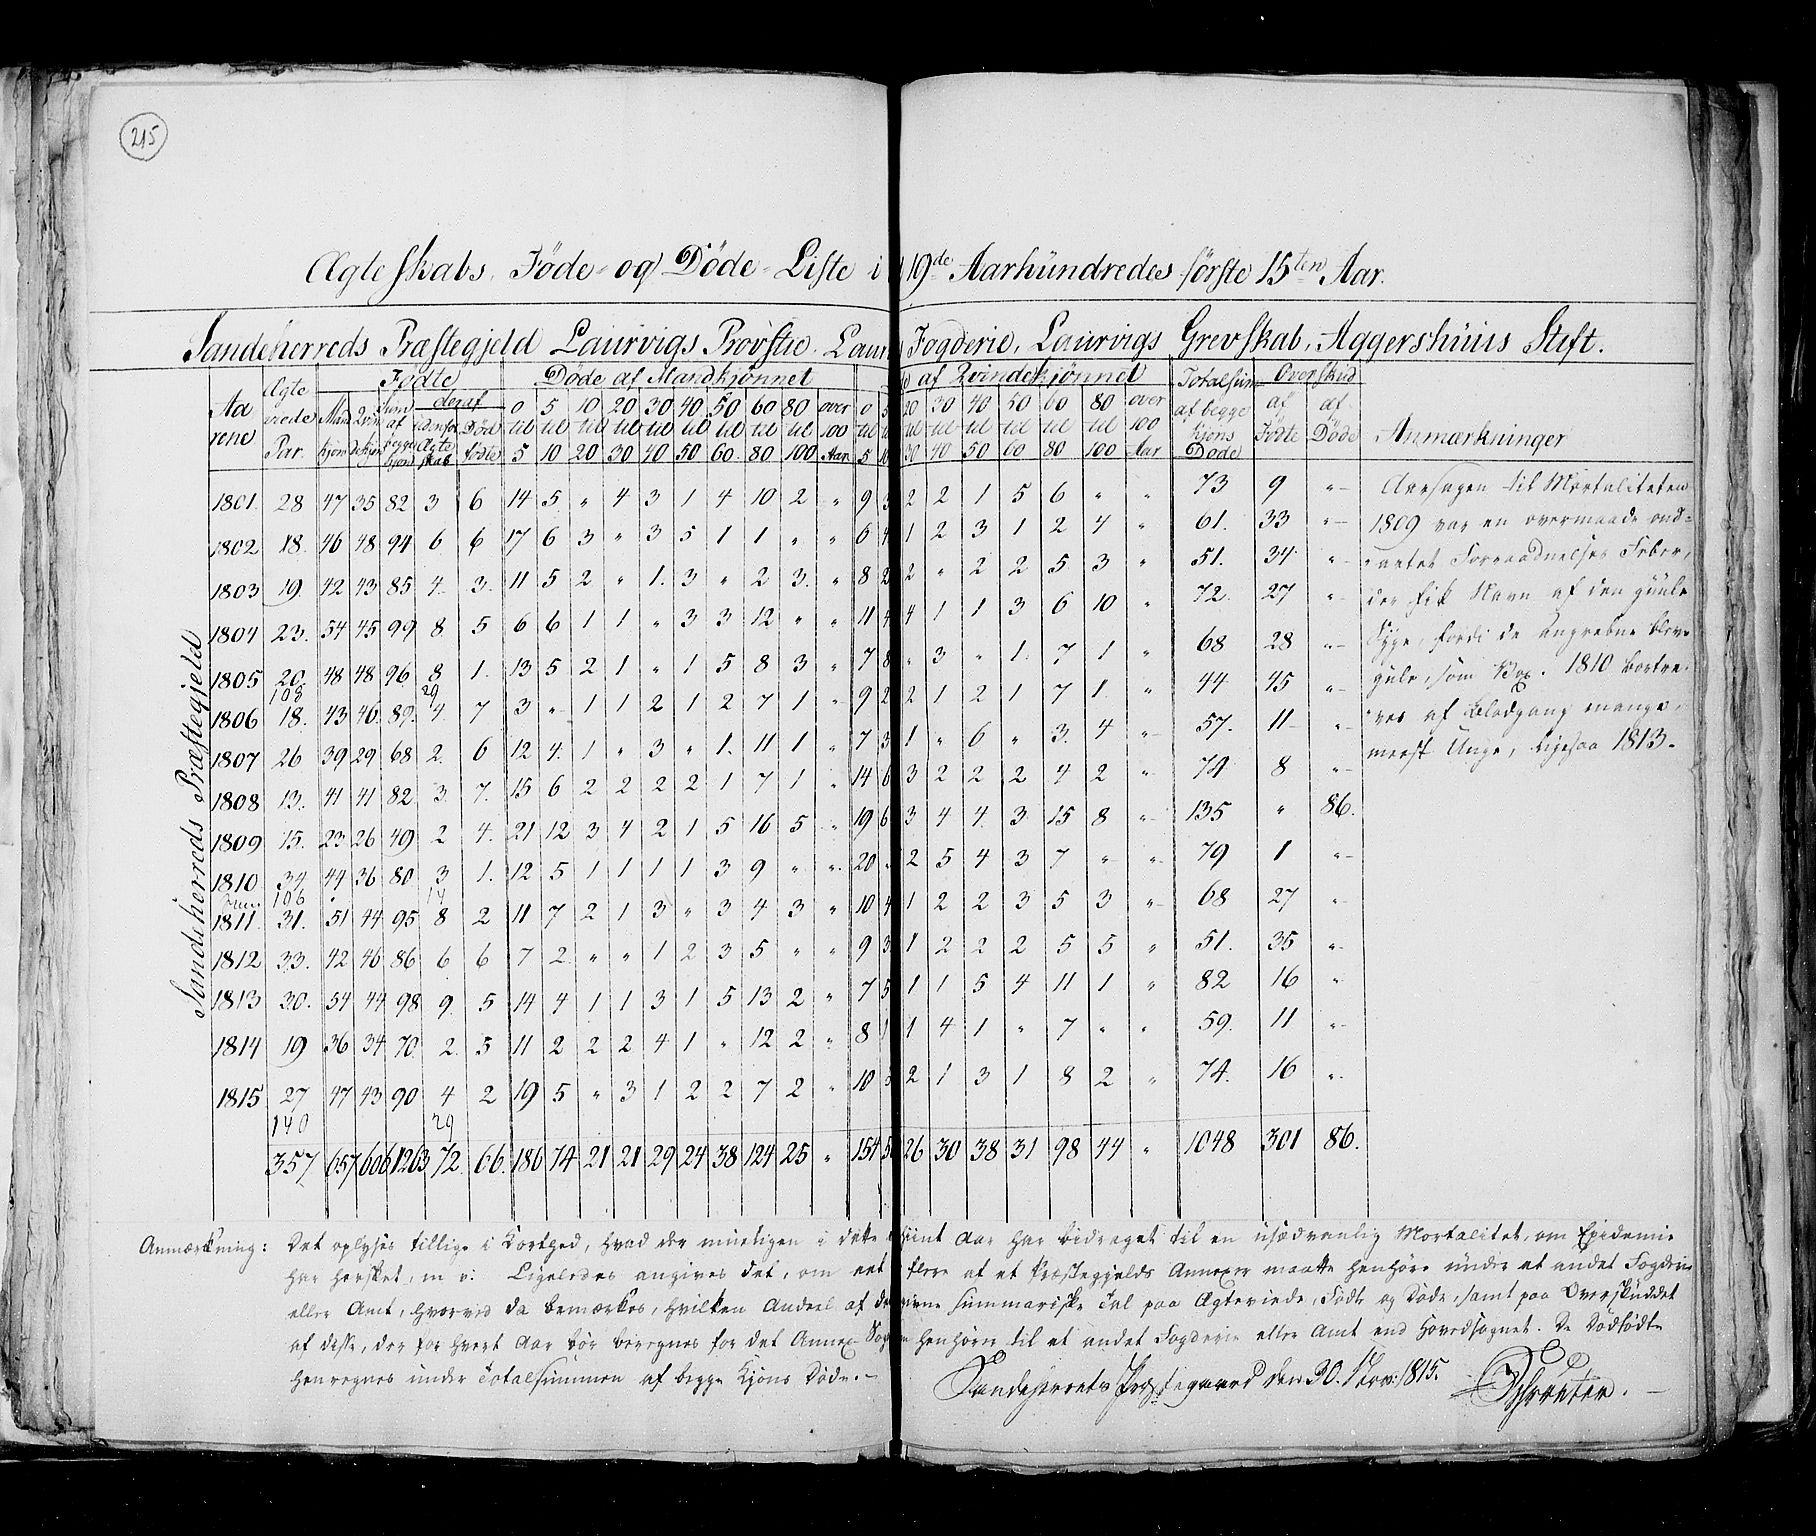 215
Ægteskabs, Føde- og Døde-Liste i 19de Aarhündredes første 15ten Aar.
Sandeherreds Præstegjeld Laurvigs Provstie. Laur Fogderie, Laurvigs Grevskab, Aggershüüs Stift.
Aarene | Ægteviede Par. | Fødte | Døde af Mandkjønnet | af Qvindekjønnet | Totalsum af begge Kjøns Døde | Overskud | Anmærkninger
Mandkjøn | Qvindekjøn | Sum af begge kjøn | deraf | udenfor Ægteskab | Dødfødte | 0 til 5 | 5 til 10 | 10 til 20 | 20 til 30 | 30 til 40 | 40 til 50 | 50 til 60 | 60 til 80 | 80 til 100 | over 100 Aar | 0 til 5 | 5 10 | 20 til 30 | 30 til 40 | 40 til 50 | 50 til 60 | 60 til 80 | 80 til 100 | over 100 Aar | af Fødte | af Døde
Sandeherreds Præstegjeld
1801. 28 47 35 82 3 6 14 5 " 4 3 1 4 10 2 " 9 3 2 2 1 5 6 " " 73 9 "
1802 18. 46 48 94 6 6 17 6 3 " 3 5 1 1 " " 6 4 1 2 3 1 2 4 " 61. 33 "
1803 19 42 43 85 4. 3. 11 5 2 " 1. 3 " 2 3. " 8 2 2 " 2 2 5 3 " 51. 34 "
1804 23. 54 45 99 8 5 6 6 1 1 " 3 3 12 " " 11 4 4 1 1 3 6 10 " 72. 27 "
1805 20. 48 48 96 8 1. 13 5 2 1 " 1 5 8 3 " 7 8 " 3 " 1. 7 1 " 68 28 "
108 29
1806 18. 43 46. 89. 4. 7 3 " 1 1 2 1 2 7 1 " 9 2 2 1 2 1 7 1. " 44 45 "
1807 26 39 29 68 2. 6 12 4. 1 " 3 " 1. 11 1 " 7 3 1 " 6 " 3. 4 " 57. 11 "
1808 13. 41 41 82 3. 7. 15 6 2 2 2 2 1 7 1 " 14 6 3 2 2 2 4 2 " 74 8 "
1809 15. 23 26 49 2 4. 21 12 3 4 2 1 5 16 5 " 19 6 3 4 4. 3 15 8 " 135 " 86.
1810 34 44 36 80 3 1. 12 5 1 1 1 1 3 9 " " 20 2 5 4 3 7 " " 79 1 "
106 14
1811 31. 51 44 95 8 2 11 7 2 1 3 " 3 4 3 " 10 4 1 2 2 3 5 3 " 68 27 "
1812 33. 42 46 86 6 6 7 2 " " 1 2 3 5 " " 9 3 1 2 2 2 5 5 " 51. 35 "
1813 30. 54 44 98 9. 5 14 4 1 1 3 1 5 13 2 " 7 5 1 1 5 4 11 1 " 82 16 "
1814 19 36 34 70 2. 5 11 2 2 2 4 1 " 12 2 " 8 1 1 4 1 " 7 " " 59. 11 "
1815 27 47 43 90 4 2 19 5 " 3 1 2 2 7 2 " 10 3 2 1 3 1 8 2 " 74. 16 "
140 29
357 657 606 1263 72. 66. 186 74 21 21 29 24 38 124 25 " 154 5 26 30 38 31 98 44 " 1048 301 86.
Aarsagen til Mortaliteten
1809 var en overmaade ond=
artet Forraadnelses Feber,
der fik Navn af den guule
Syge, fordi de angrebne bleve
gule, som Vox. 1810 bortre=
ves af Blodgang mange,
meest Unge, Ligesaa 1813.
Anmærkning: Det oplyses tillige i Korthed, hvad der mueligen i dette eet Aar har bidraget til en usædvanlig Mortalitet, om Epidemie
har hersket, m v: Ligeledes angives det, om eet flere af et Præstegjelds Annexer maatte henhøre under et andet Fogderie
eller Amt, hvorved da bemærkes, hvilken Andeel af de givne summariske Tal paa Ægteviede, Fødte og Døde, samt paa Overskuddet
af disse, der for hvert Aar bør beregnes for det Annex-Sogn henhører til et andet Fogderie eller Amt end Hovedsognet. De Dødfødte
henregnes under Totalsummen af begge Kjøns Døde.
Sandeherreds Præstegaard den 30. Nov: 1815.
Schrøeter.